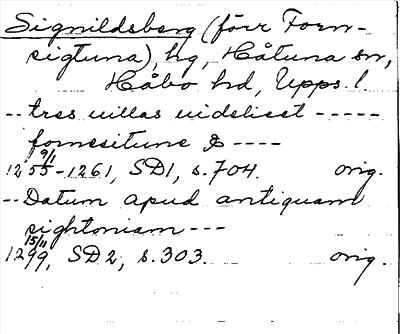 Signildsberg (förr Forn-
sigtuna), hg, Håtuna sn,
Håbo hd, Upps. l.
-- tres uillas uidelicet -----
fornesitune & ----
9/11
1255-1261, SD1, s. 704. orig.
-- Datum apud antiquam
sightoniam ---
15/11
1299, SD2, s. 303. orig.